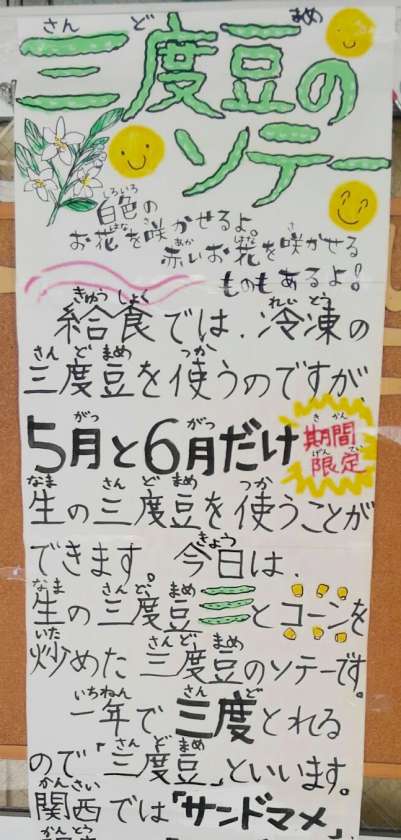 三度豆の
ソテー
白色の
お花を咲かせるよ。
赤いお花を咲かせる
ものもあるよ!
給食では、冷凍の
三度豆を使うのですが、
5月と6月だけ
期間
限定
生の三度豆を使うことが
できます。今日は、
生の三度豆とコーンを
炒めた三度豆のソテーです。
一年で三度とれる
ので「三度豆」といいます。
関西では「サンドマメ」